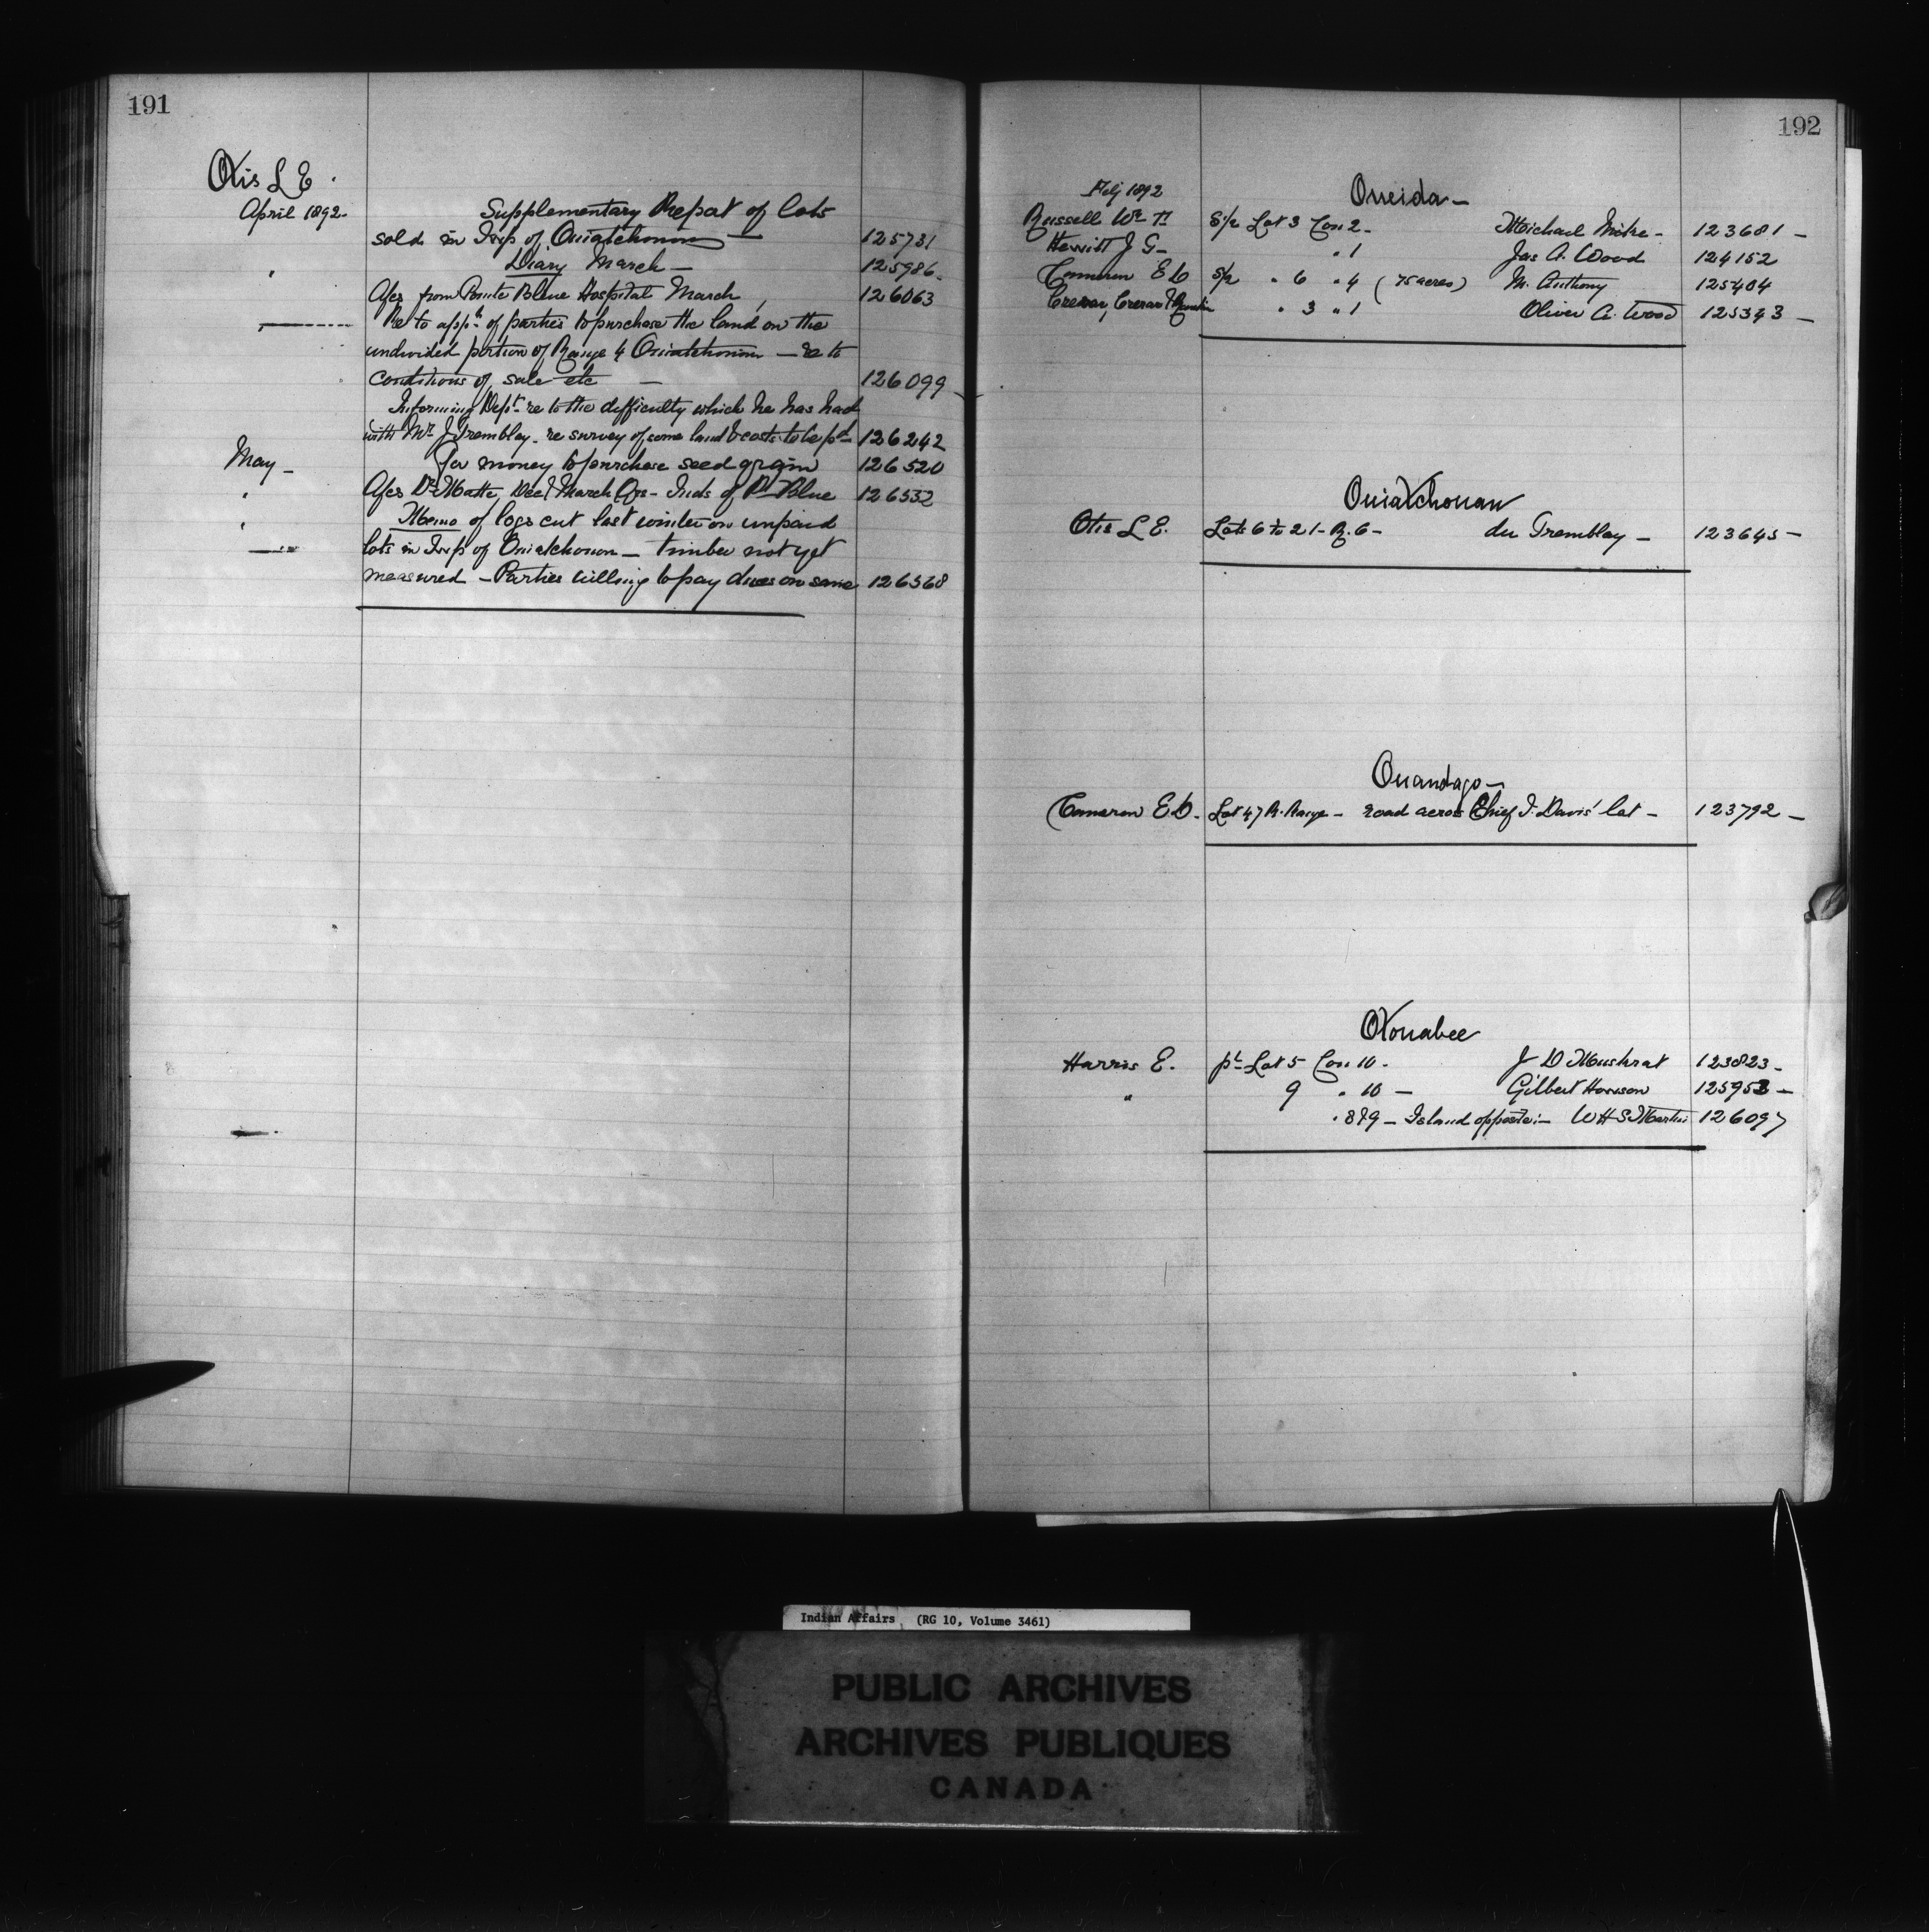 191
Otis L E.
April 1892. Supplementary Report of lots
sold in Twp of Ouiatchouan — 125731
" Diary March — 125986.
A/cs from Pointe Bleue Hospital March, 126063
Re to appn of parties to purchase the land on the
undivided portion of Range 4 Ouiatchouan — re to
conditions of sale etc — 126099
Informing Dept re to the difficulty which he has had
with Mr J Tremblay - re survey of some land & costs to be pd 126242
May — For money to purchase seed grain 126520
" A/cs Dr Matte, Dec & March Qrs - Inds of Pt Blue 126532
" Memo of logs cut last winter on unpaid
lots in Twp of Ouiatchouan — timber not yet
measured — Parties willing to pay dues on same 126568
192
Feby 1892 Oneida —
Russell Wm T. S/2 Lot 3 Con 2 - Michael - 123681 —
Hewitt J G — " 1 Jas A. Wood 124152
Cameron E D S/2 " 6 " 4 (75 acres) M. Anthony 125404
Crerar, Crerar & " 3 " 1 Oliver A. Wood 125343 —
Ouiatchouan
Otis L E. Lots 6 to 21 - R. 6 - du Tremblay — 123645 —
Onandaga —
Cameron E D. Lot 47 R. Range — road across Chief I. Davis' lot — 123792 —
Otonabee
Harris E. pt Lot 5 Con 10. J D Muskrat 123823 —
" 9 " 10 — Gilbert 125953 —
" 8 & 9 — Island opposite — W H S Martin 126097
Indian Affairs (RG 10, Volume 3461)
PUBLIC ARCHIVES
ARCHIVES PUBLIQUES
CANADA